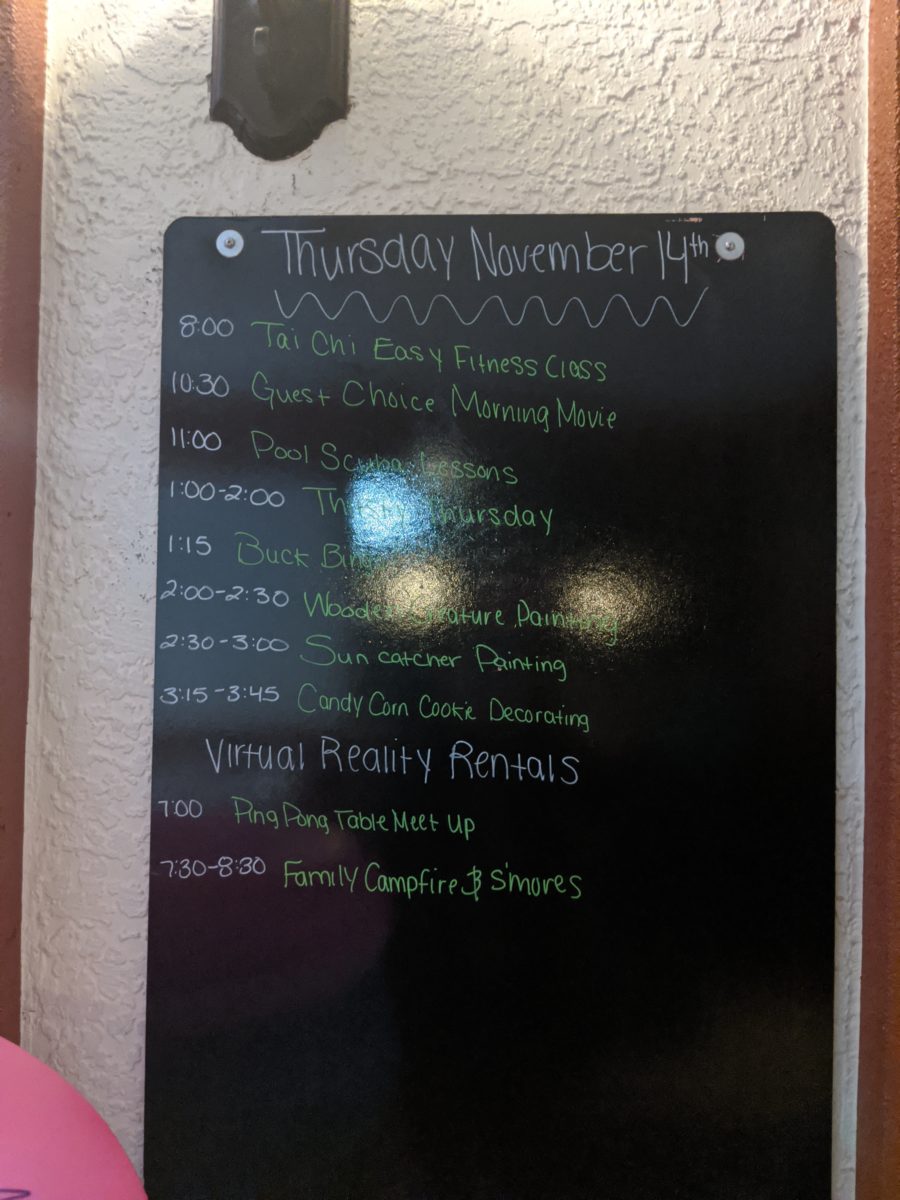 Thursday November 14th
8:00 Tai Chi Easy Fitness Class
10:30 Guest Choice Morning Movie
11:00 Pool Scuba Lessons
1:00-2:00 Thirsty Thursday
1:15 Buck Bingo
2:00-2:30 Wooden Creature Painting
2:30-3:00 Sun catcher Painting
3:15-3:45 Candy Corn Cookie Decorating
Virtual Reality Rentals
7:00 Ping Pong Table Meet Up
7:30-8:30 Family Campfire & S'mores